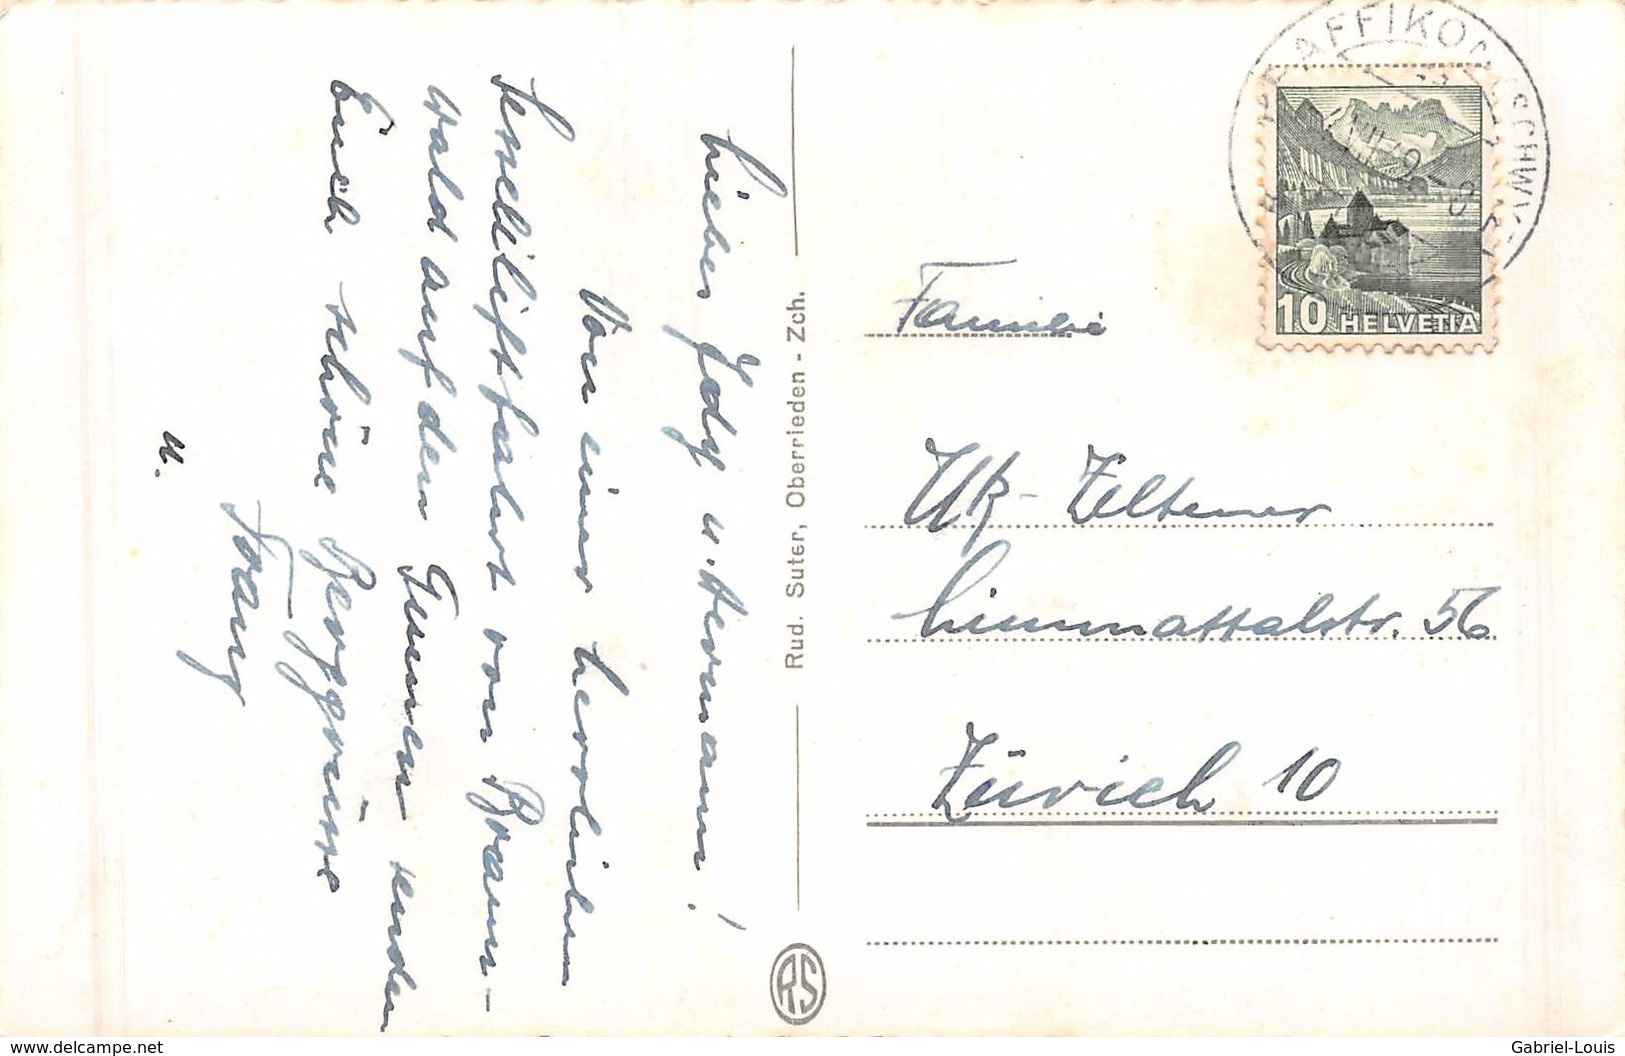 Liebes Jdy u. Hermann!
Von einer herrlichen
Sesselliftfahrt von Braun-
wald auf den Gumen senden
Euch schöne Berggrüsse
Franz
u.
Rud. Suter, Oberrieden - Zch.
RS
PFÄFFIKON (SCHWYZ)
10 HELVETIA
Familie
Utz-Zeltner
Limmattalstr. 56
Zürich 10
www.delcampe.net
Gabriel-Louis